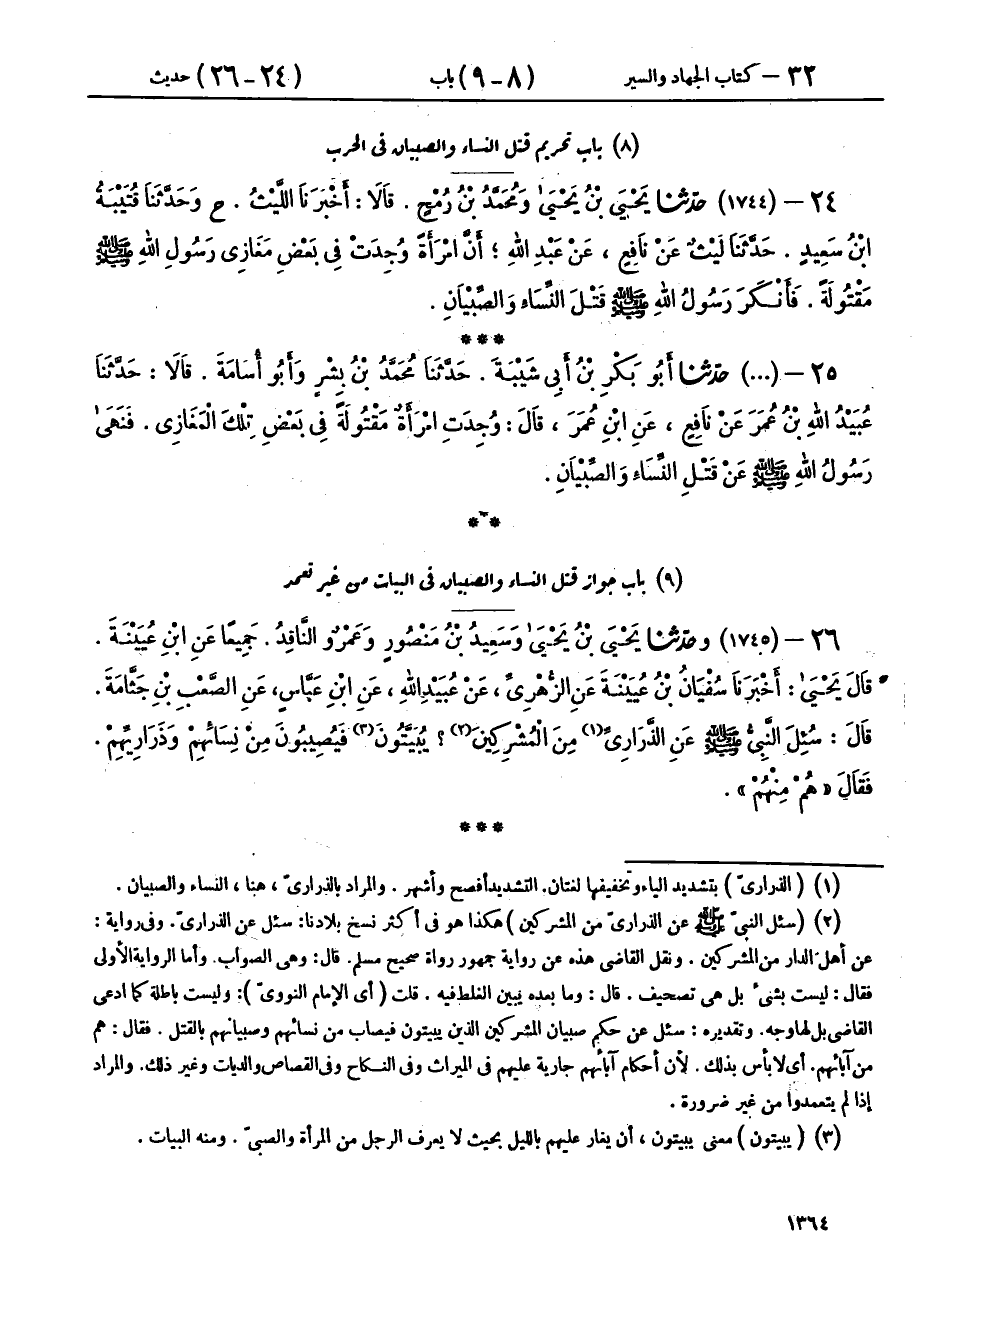 ٣٢ – كتاب الجهاد والسير (٨ – ٩) باب (٢٤ – ٢٦) حديث
(٨) باب تحريم قتل النساء والصبيان فى الحرب
٢٤ – (١٧٤٤) حدّثنا يَحْيَىٰ بْنُ يَحْيَىٰ وَمُحَمَّدُ بْنُ رُمْحٍ . قَالَا : أَخْبَرَنَا اللَّيْثُ . ح وَحَدَّثَنَا قُتَيْبَةُ
ابْنُ سَعِيدٍ . حَدَّثَنَا لَيْثٌ عَنْ نَافِعٍ ، عَنْ عَبْدِ اللهِ ؛ أَنَّ امْرَأَةً وُجِدَتْ فِى بَعْضِ مَغَازِى رَسُولِ اللهِ ﷺ
مَقْتُولَةً . فَأَنْكَرَ رَسُولُ اللهِ ﷺ قَتْلَ النِّسَاءِ وَالصِّبْيَانِ .
***
٢٥ – (...) حدّثنا أَبُو بَكْرِ بْنُ أَبِى شَيْبَةَ . حَدَّثَنَا مُحَمَّدُ بْنُ بِشْرٍ وَأَبُو أُسَامَةَ . قَالَا : حَدَّثَنَا
عُبَيْدُ اللهِ بْنُ عُمَرَ عَنْ نَافِعٍ ، عَنِ ابْنِ عُمَرَ ، قَالَ : وُجِدَتِ امْرَأَةٌ مَقْتُولَةً فِى بَعْضِ تِلْكَ الْمَغَازِى . فَنَهَىٰ
رَسُولُ اللهِ ﷺ عَنْ قَتْلِ النِّسَاءِ وَالصِّبْيَانِ .
***
(٩) باب جواز قتل النساء والصبيان فى البيات من غير تعمد
٢٦ – (١٧٤٥) وحدّثنا يَحْيَىٰ بْنُ يَحْيَىٰ وَسَعِيدُ بْنُ مَنْصُورٍ وَعَمْرٌو النَّاقِدُ . جَمِيعًا عَنِ ابْنِ عُيَيْنَةَ .
قَالَ يَحْيَىٰ : أَخْبَرَنَا سُفْيَانُ بْنُ عُيَيْنَةَ عَنِ الزُّهْرِىِّ ، عَنْ عُبَيْدِ اللهِ ، عَنِ ابْنِ عَبَّاسٍ، عَنِ الصَّعْبِ بْنِ جَثَّامَةَ .
قَالَ : سُئِلَ النَّبِىُّ ﷺ عَنِ الذَّرَارِىِّ(١) مِنَ الْمُشْرِكِينَ(٢) ؟ يُبَيَّتُونَ(٣) فَيُصِيبُونَ مِنْ نِسَائِهِمْ وَذَرَارِيِّهِمْ .
فَقَالَ « هُمْ مِنْهُمْ » .
***
(١) ( الذرارىّ ) بتشديد الياء وتخفيفها لغتان. التشديد أفصح وأشهر . والمراد بالذرارىّ ، هنا ، النساء والصبيان .
(٢) (سئل النبىّ ﷺ عن الذرارىّ من المشركين ) هكذا هو فى أكثر نسخ بلادنا: سئل عن الذرارىّ. وفى رواية :
عن أهل الدار من المشركين . ونقل القاضى هذه عن رواية جمهور رواة صحيح مسلم. قال: وهى الصواب. وأما الرواية الأولى
فقال : ليست بشئ بل هى تصحيف . قال : وما بعده يبين الغلط فيه . قلت ( أى الإمام النووىّ ): وليست باطلة كما ادعى
القاضى بل لها وجه. وتقديره : سئل عن حكم صبيان المشركين الذين يبيتون فيصاب من نسائهم وصبيانهم بالقتل . فقال : هم
من آبائهم. أى لا بأس بذلك . لأن أحكام آبائهم جارية عليهم فى الميراث وفى النكاح وفى القصاص والديات وغير ذلك. والمراد
إذا لم يتعمدوا من غير ضرورة .
(٣) ( يبيتون ) معنى يبيتون ، أن يغار عليهم بالليل بحيث لا يعرف الرجل من المرأة والصبىّ . ومنه البيات .
١٣٦٤